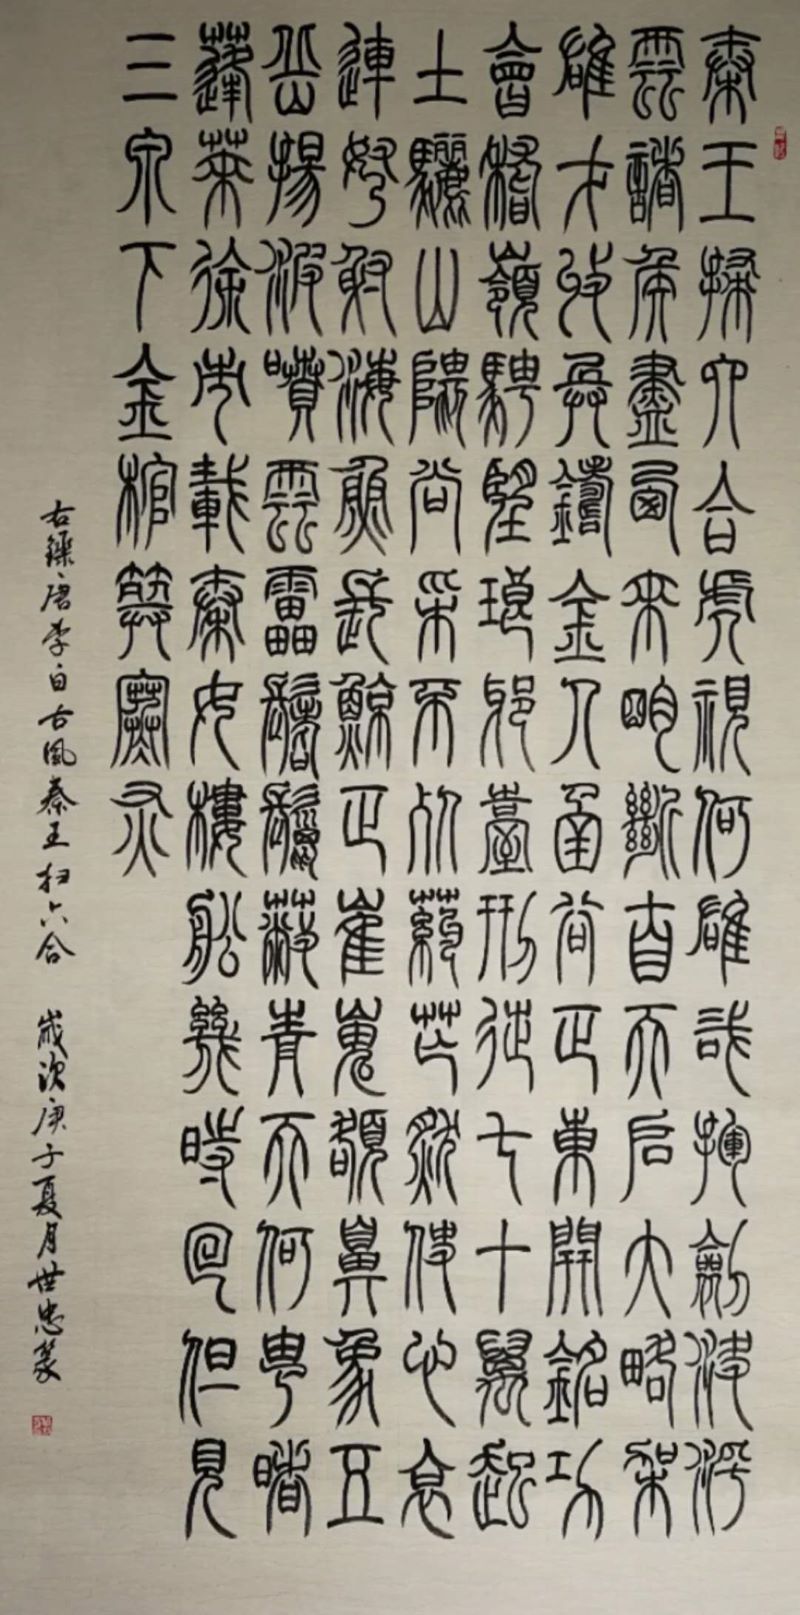 秦王掃六合虎視何雄哉揮劍決浮
雲諸侯盡西來明斷自天启大略架
雄才收兵鑄金人函谷正東開銘功
會稽嶺騁望琅邪臺刑徒七十萬起
土驪山隈尚采不死藥茫然使心哀
連弩射海魚長鯨正崔嵬額鼻象五
岳揚波噴雲雷鬐鬣蔽青天何由睹
蓬萊徐巿載秦女樓船幾時回但見
三泉下金棺葬寒灰
右錄唐李白古風秦王扫六合 歲次庚子夏月世忠篆